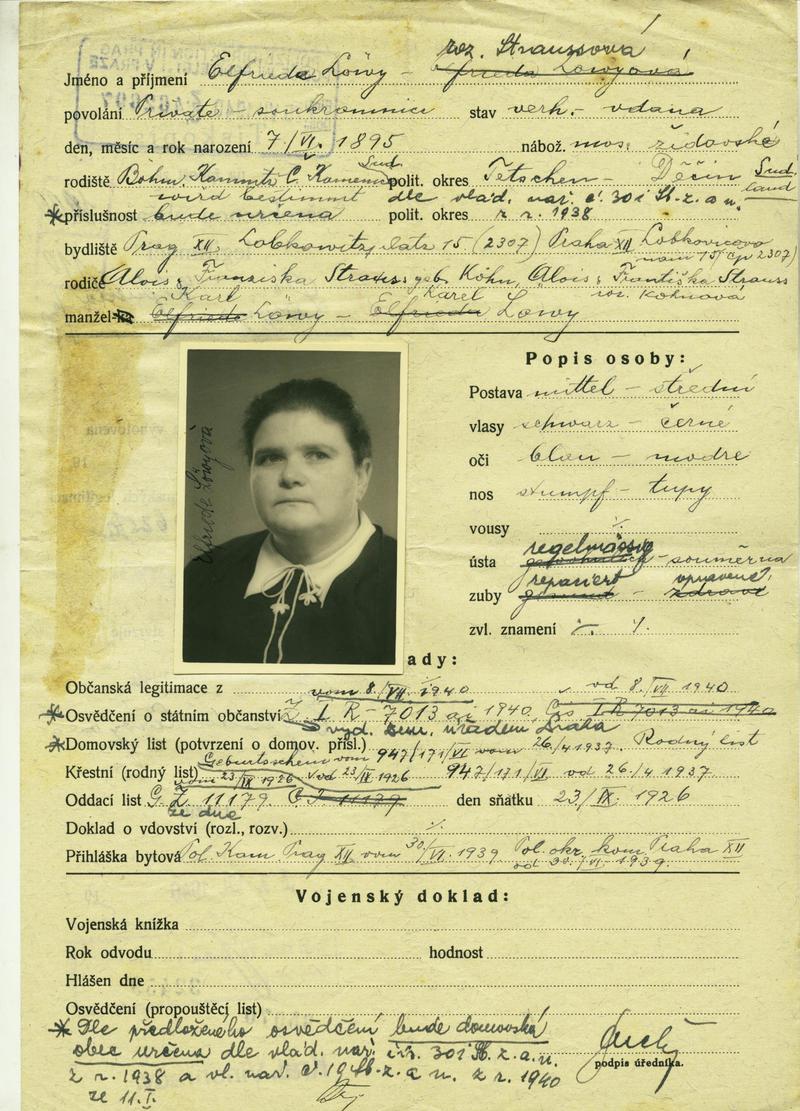 roz. Straussová
Jméno a příjmení Elfriede Löwy – Elfrieda Löwyová
povolání Private – soukromnice stav verh. – vdaná
den, měsíc a rok narození 7/VI. 1895 nábož. mos. židovské
rodiště Böhm. Kamnitz Č. Kamenice Sud. polit. okres Tetschen – Děčín Sudland
wird bestimmt dle vlád. nař. č. 301 Sb. z. a n.
* příslušnost bude určena polit. okres z r. 1938
bydliště Prag XII, Lobkowitzplatz 15 (2307) Praha XII Lobkovicovo
nám 15 (čp 2307)
rodiče Alois & Franziska Strauss geb. Kohn, Alois & Františka Strauss
roz. Kohnová
Karl Karel
manžel-ka Elfriede Löwy – Elfrieda Löwy
Popis osoby:
Postava mittel – střední
vlasy schwarz – černé
oči blau – modré
nos stumpf – tupý
vousy ./.
regelmässig
ústa – souměrná
repariert opravené
zuby gesund – zdravé
zvl. znamení ./. ./.
Elfriede Löwyová
ady:
Občanská legitimace z vom 8./VII. 1940 od 8./VII 1940
* Osvědčení o státním občanství Z. I R – 7013 ai 1940 Čís. I R 7013 ai 1940
vyd. zem. úřadem Praha
* Domovský list (potvrzení o domov. přísl.) 947/171/VI vom 26/4 1937. Rodný list
Geburtsschein vom
Křestní (rodný list) vom 23/IX 1926 od 23/IX 1926 947/171/VI od 26/4 1937
Oddací list G. Z. 11179 Č. J. 11179 den sňatku 23/IX. 1926
ze dne
Doklad o vdovství (rozl., rozv.) ./.
Přihláška bytová Pol. Kom Prag XII vom 30/VI. 1939 Pol. okr. kom Praha XII
od 30./VI. 1939.
Vojenský doklad:
Vojenská knížka
Rok odvodu hodnost
Hlášen dne
Osvědčení (propouštěcí list)
* Dle předloženého osvědčení bude domovská
obec určena dle vlád. nař. čís. 301 Sb. z. a. n.
z r. 1938 a vl. nař. č. 19 Sb. z. a n. z r. 1940
ze 11. I.
podpis úředníka.